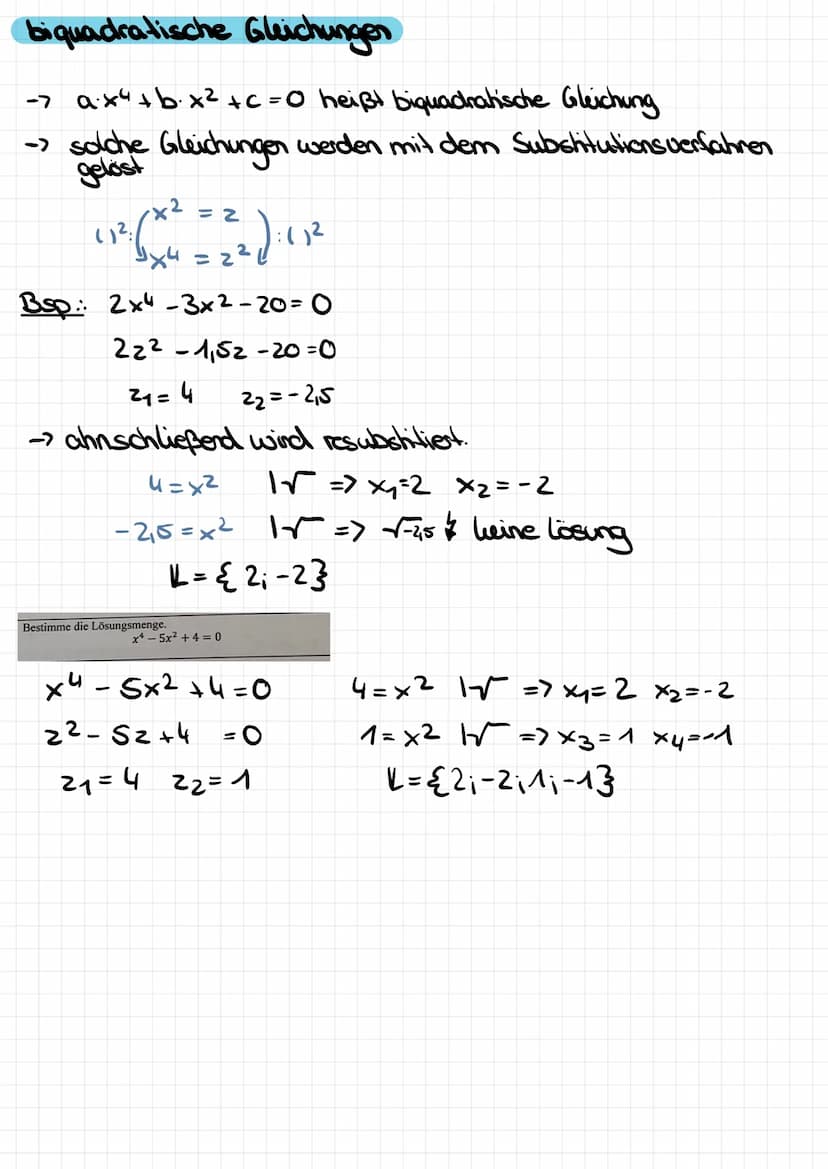 biquadratische Gleichungen
-> a·x⁴ + b·x² + c = 0 heißt biquadratische Gleichung
-> solche Gleichungen werden mit dem Substitutionsverfahren
gelöst
( )²: ( x² = z
x⁴ = z² ) : ( )²
Bsp.: 2x⁴ - 3x² - 20 = 0
2z² - 1,5z - 20 = 0
z₁ = 4 z₂ = - 2,5
-> ahnschließend wird resubstitiert.
4 = x² |√ => x₁ = 2 x₂ = - 2
- 2,5 = x² |√ => √-2,5 ↯ keine Lösung
𝕃 = { 2; -2}
Bestimme die Lösungsmenge.
x⁴ − 5x² + 4 = 0
x⁴ - 5x² + 4 = 0 4 = x² |√ => x₁ = 2 x₂ = -2
z² - 5z + 4 = 0 1 = x² |√ => x₃ = 1 x₄ = -1
z₁ = 4 z₂ = 1 𝕃 = {2; -2; 1; -1}